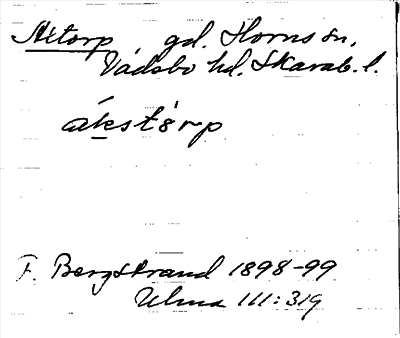 Axtorp gd. Horns sn,
Vadsbo hd. Skarab. l.
ákstórp
F. Bergstrand 1898-99
Ulma 111:319